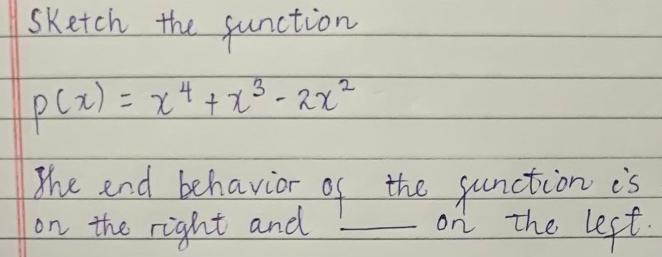 Sketch the function
p(x) = x⁴ + x³ - 2x²
The end behavior of the function is
on the right and ____ on the left.